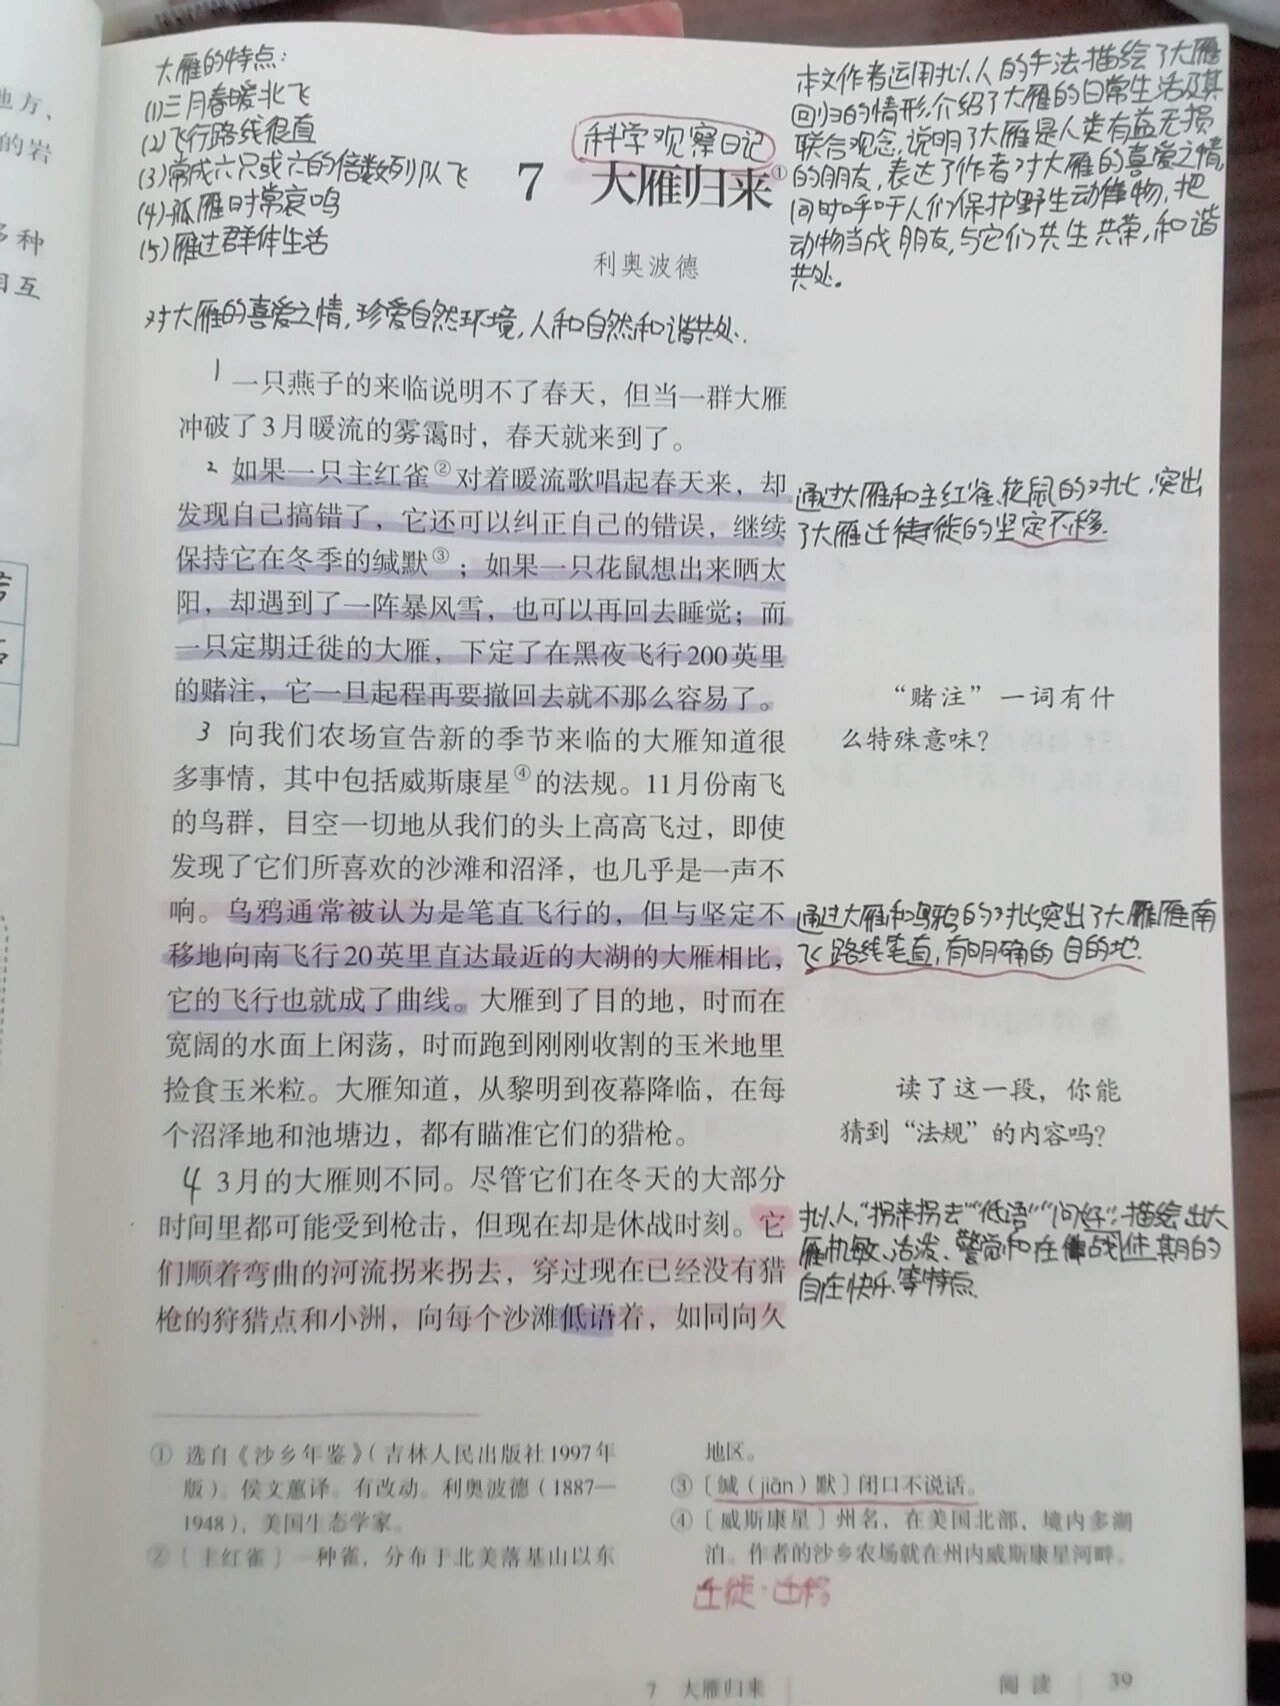 地方、
的岩
多种
相互
大雁的特点：
(1)三月春暖北飞
(2)飞行路线很直
(3)常成六只或六的倍数列队飞
(4)孤雁时常哀鸣
(5)雁过群体生活
对大雁的喜爱之情,珍爱自然环境,人和自然和谐共处.
科学观察日记
7 大雁归来①
利奥波德
本文作者运用拟人的手法描绘了大雁
回归的情形,介绍了大雁的日常生活及其
联合观念,说明了大雁是人类有益无损
的朋友,表达了作者对大雁的喜爱之情,
同时呼吁人们保护野生动物,把
动物当成朋友,与它们共生共荣,和谐
共处。
1 一只燕子的来临说明不了春天，但当一群大雁
冲破了3月暖流的雾霭时，春天就来到了。
2 如果一只主红雀②对着暖流歌唱起春天来，却
发现自己搞错了，它还可以纠正自己的错误，继续
保持它在冬季的缄默③；如果一只花鼠想出来晒太
阳，却遇到了一阵暴风雪，也可以再回去睡觉；而
一只定期迁徙的大雁，下定了在黑夜飞行200英里
的赌注，它一旦起程再要撤回去就不那么容易了。
通过大雁和主红雀、花鼠的对比,突出
了大雁迁徙的坚定不移.
“赌注”一词有什
么特殊意味？
3 向我们农场宣告新的季节来临的大雁知道很
多事情，其中包括威斯康星④的法规。11月份南飞
的鸟群，目空一切地从我们的头上高高飞过，即使
发现了它们所喜欢的沙滩和沼泽，也几乎是一声不
响。乌鸦通常被认为是笔直飞行的，但与坚定不
移地向南飞行20英里直达最近的大湖的大雁相比，
它的飞行也就成了曲线。大雁到了目的地，时而在
宽阔的水面上闲荡，时而跑到刚刚收割的玉米地里
捡食玉米粒。大雁知道，从黎明到夜幕降临，在每
个沼泽地和池塘边，都有瞄准它们的猎枪。
通过大雁和乌鸦的对比突出了大雁南
飞路线笔直,有明确的目的地.
读了这一段，你能
猜到“法规”的内容吗？
4 3月的大雁则不同。尽管它们在冬天的大部分
时间里都可能受到枪击，但现在却是休战时刻。它
们顺着弯曲的河流拐来拐去，穿过现在已经没有猎
枪的狩猎点和小洲，向每个沙滩低语着，如同向久
拟人,“拐来拐去”“低语”“问好”:描绘出大
雁机敏、活泼、警觉和在休战期的
自在快乐等特点.
① 选自《沙乡年鉴》（吉林人民出版社1997年
版）。侯文蕙译。有改动。利奥波德（1887—
1948），美国生态学家。
②〔主红雀〕一种雀，分布于北美落基山以东
地区。
③〔缄（jiān）默〕闭口不说话。
④〔威斯康星〕州名，在美国北部，境内多湖
泊。作者的沙乡农场就在州内威斯康星河畔。
迁徙：迁移
7 大雁归来 阅读 39